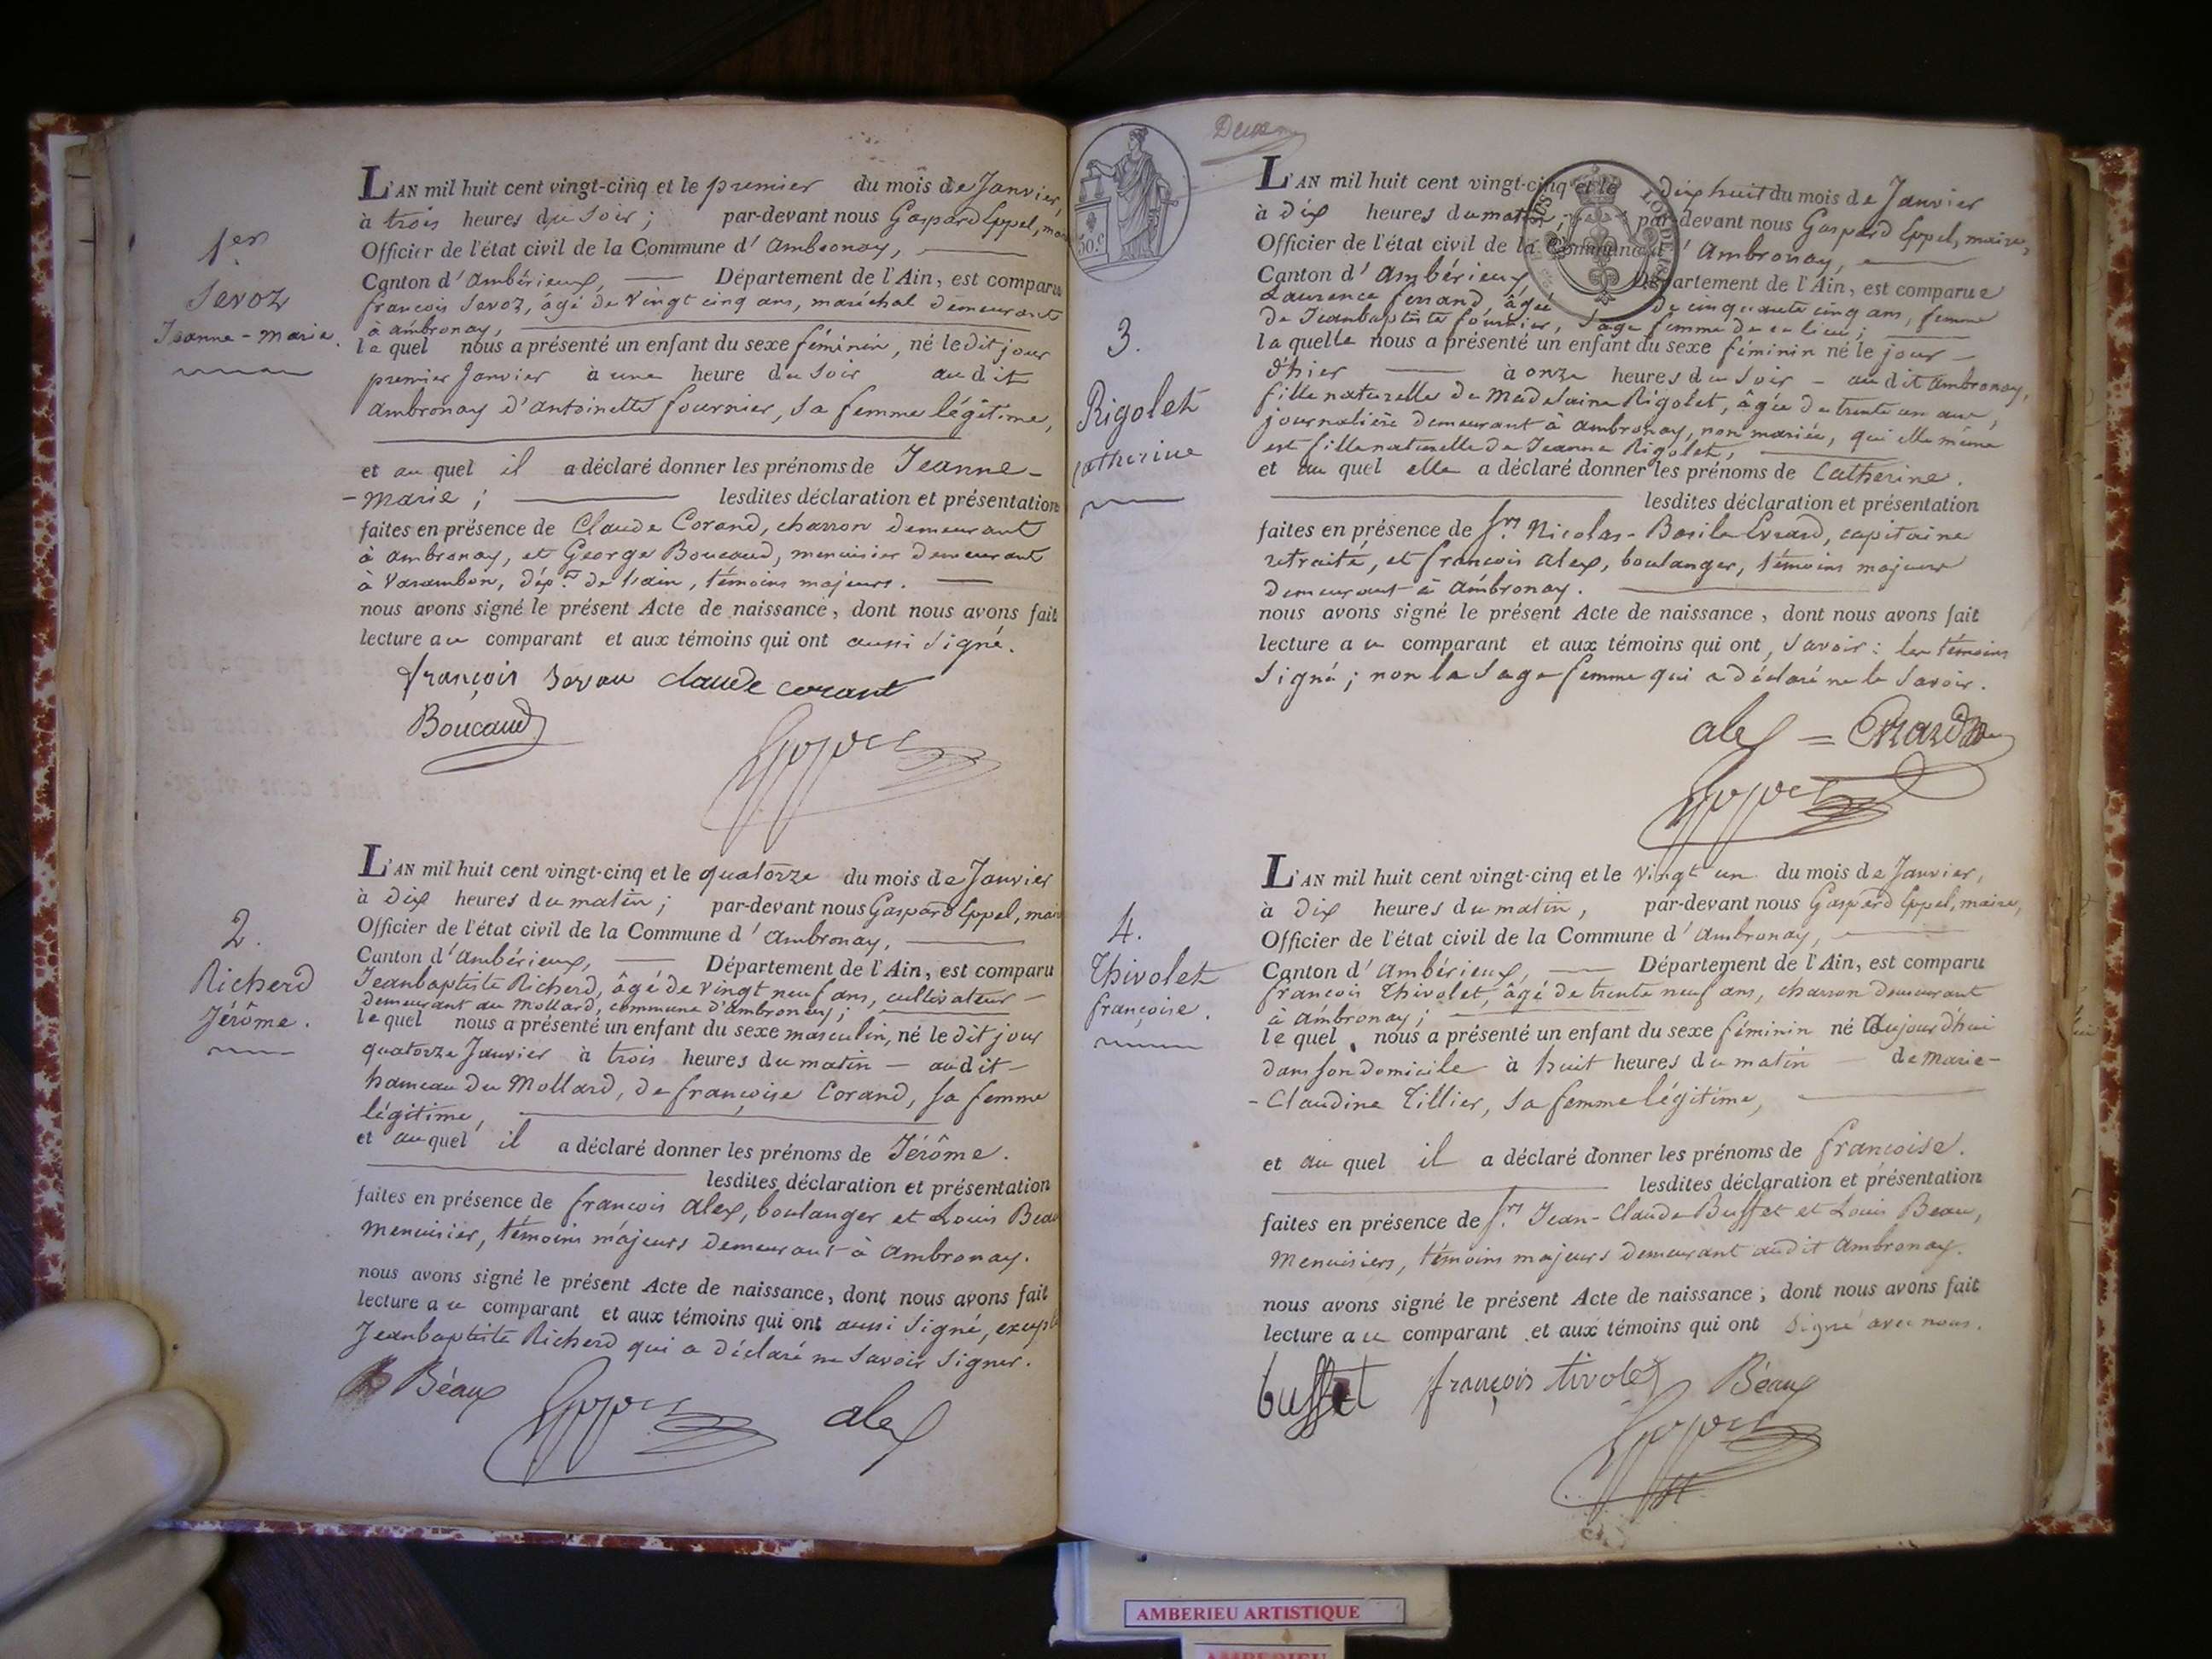 1er
Sevoz
Jeanne-Marie.
L'AN mil huit cent vingt-cinq et le premier du mois de Janvier,
à trois heures du soir; par-devant nous Gaspard Eppel,
Officier de l'état civil de la Commune d'Ambronay,
Canton d'Ambérieux, Département de l'Ain, est comparu
françois Sevoz, âgé de vingt cinq ans, maréchal demeurant
à ambronay,
lequel nous a présenté un enfant du sexe féminin, né ledit jour
premier Janvier à une heure du soir audit
ambronay d'antoinette fournier, sa femme légitime,
et au quel il a déclaré donner les prénoms de Jeanne-
-Marie; lesdites déclaration et présentation
faites en présence de Claude Corand, charron demeurant
à ambronay, et George Boucaud, menuisier demeurant
à Varambon, dépt de l'ain, témoins majeurs.
nous avons signé le présent Acte de naissance, dont nous avons fait
lecture au comparant et aux témoins qui ont aussi signé.
françois claude corant
Boucaud
2.
Richerd
Jérôme.
L'AN mil huit cent vingt-cinq et le quatorze du mois de Janvier
à dix heures du matin; par-devant nous Gaspard Eppel,
Officier de l'état civil de la Commune d'ambronay,
Canton d'ambérieux, Département de l'Ain, est comparu
Jeanbaptiste Richerd, âgé de vingt neuf ans, cultivateur
demeurant au Mollard, commune d'ambronay;
lequel nous a présenté un enfant du sexe masculin, né le dit jour
quatorze Janvier à trois heures du matin - audit -
hameau du Mollard, de françoise Corand, sa femme
légitime,
et auquel il a déclaré donner les prénoms de Jérôme.
lesdites déclaration et présentation
faites en présence de françois alex, boulanger et Louis Beau
menuisier, témoins majeurs demeurant à ambronay.
nous avons signé le présent Acte de naissance, dont nous avons fait
lecture au comparant et aux témoins qui ont aussi signé, excepté
Jeanbaptiste Richerd qui a déclaré ne savoir signer.
Béaux alex
50 c.
3.
Rigolet
Catherine
L'AN mil huit cent vingt-cinq et le dix huit du mois de Janvier
à dix heures du matin; par-devant nous Gaspard Eppel, maire,
Officier de l'état civil de la Commune d'Ambronay,
Canton d'Ambérieux, Département de l'Ain, est comparue
Laurence ferrand, âgée de cinquante cinq ans, femme
de Jeanbaptiste fournier, sage femme de ce lieu;
la quelle nous a présenté un enfant du sexe féminin né le jour -
d'hier à onze heures du soir - audit ambronay,
fille naturelle de Madelaine Rigolet, âgée de trente un ans,
journalière demeurant à ambronay, non mariée, qui elle même
est fille naturelle de Jeanne Rigolet,
et au quel elle a déclaré donner les prénoms de Catherine.
lesdites déclaration et présentation
faites en présence de Srs Nicolas-Basile Evrard, capitaine
retraité, et françois alex, boulanger, témoins majeurs
demeurant à ambronay.
nous avons signé le présent Acte de naissance, dont nous avons fait
lecture au comparant et aux témoins qui ont, savoir: les témoins
signé; non la sage femme qui a déclaré ne le savoir.
alex = Evrard
4.
Thivolet
françoise.
L'AN mil huit cent vingt-cinq et le vingt un du mois de Janvier,
à dix heures du matin, par-devant nous Gaspard Eppel, maire,
Officier de l'état civil de la Commune d'ambronay,
Canton d'Ambérieux, Département de l'Ain, est comparu
françois Thivolet, âgé de trente neuf ans, charron demeurant
à ambronay;
lequel nous a présenté un enfant du sexe féminin né aujourd'hui
dans son domicile à huit heures du matin de Marie-
-Claudine Tillier, sa femme légitime,
et au quel il a déclaré donner les prénoms de françoise.
lesdites déclaration et présentation
faites en présence de Srs Jean-Claude Buffet et Louis Beau,
Menuisiers, témoins majeurs demeurant audit Ambronay.
nous avons signé le présent Acte de naissance, dont nous avons fait
lecture au comparant et aux témoins qui ont signé avec nous.
buffet françois tivolet Béaux
AMBERIEU ARTISTIQUE
AMBERIEU